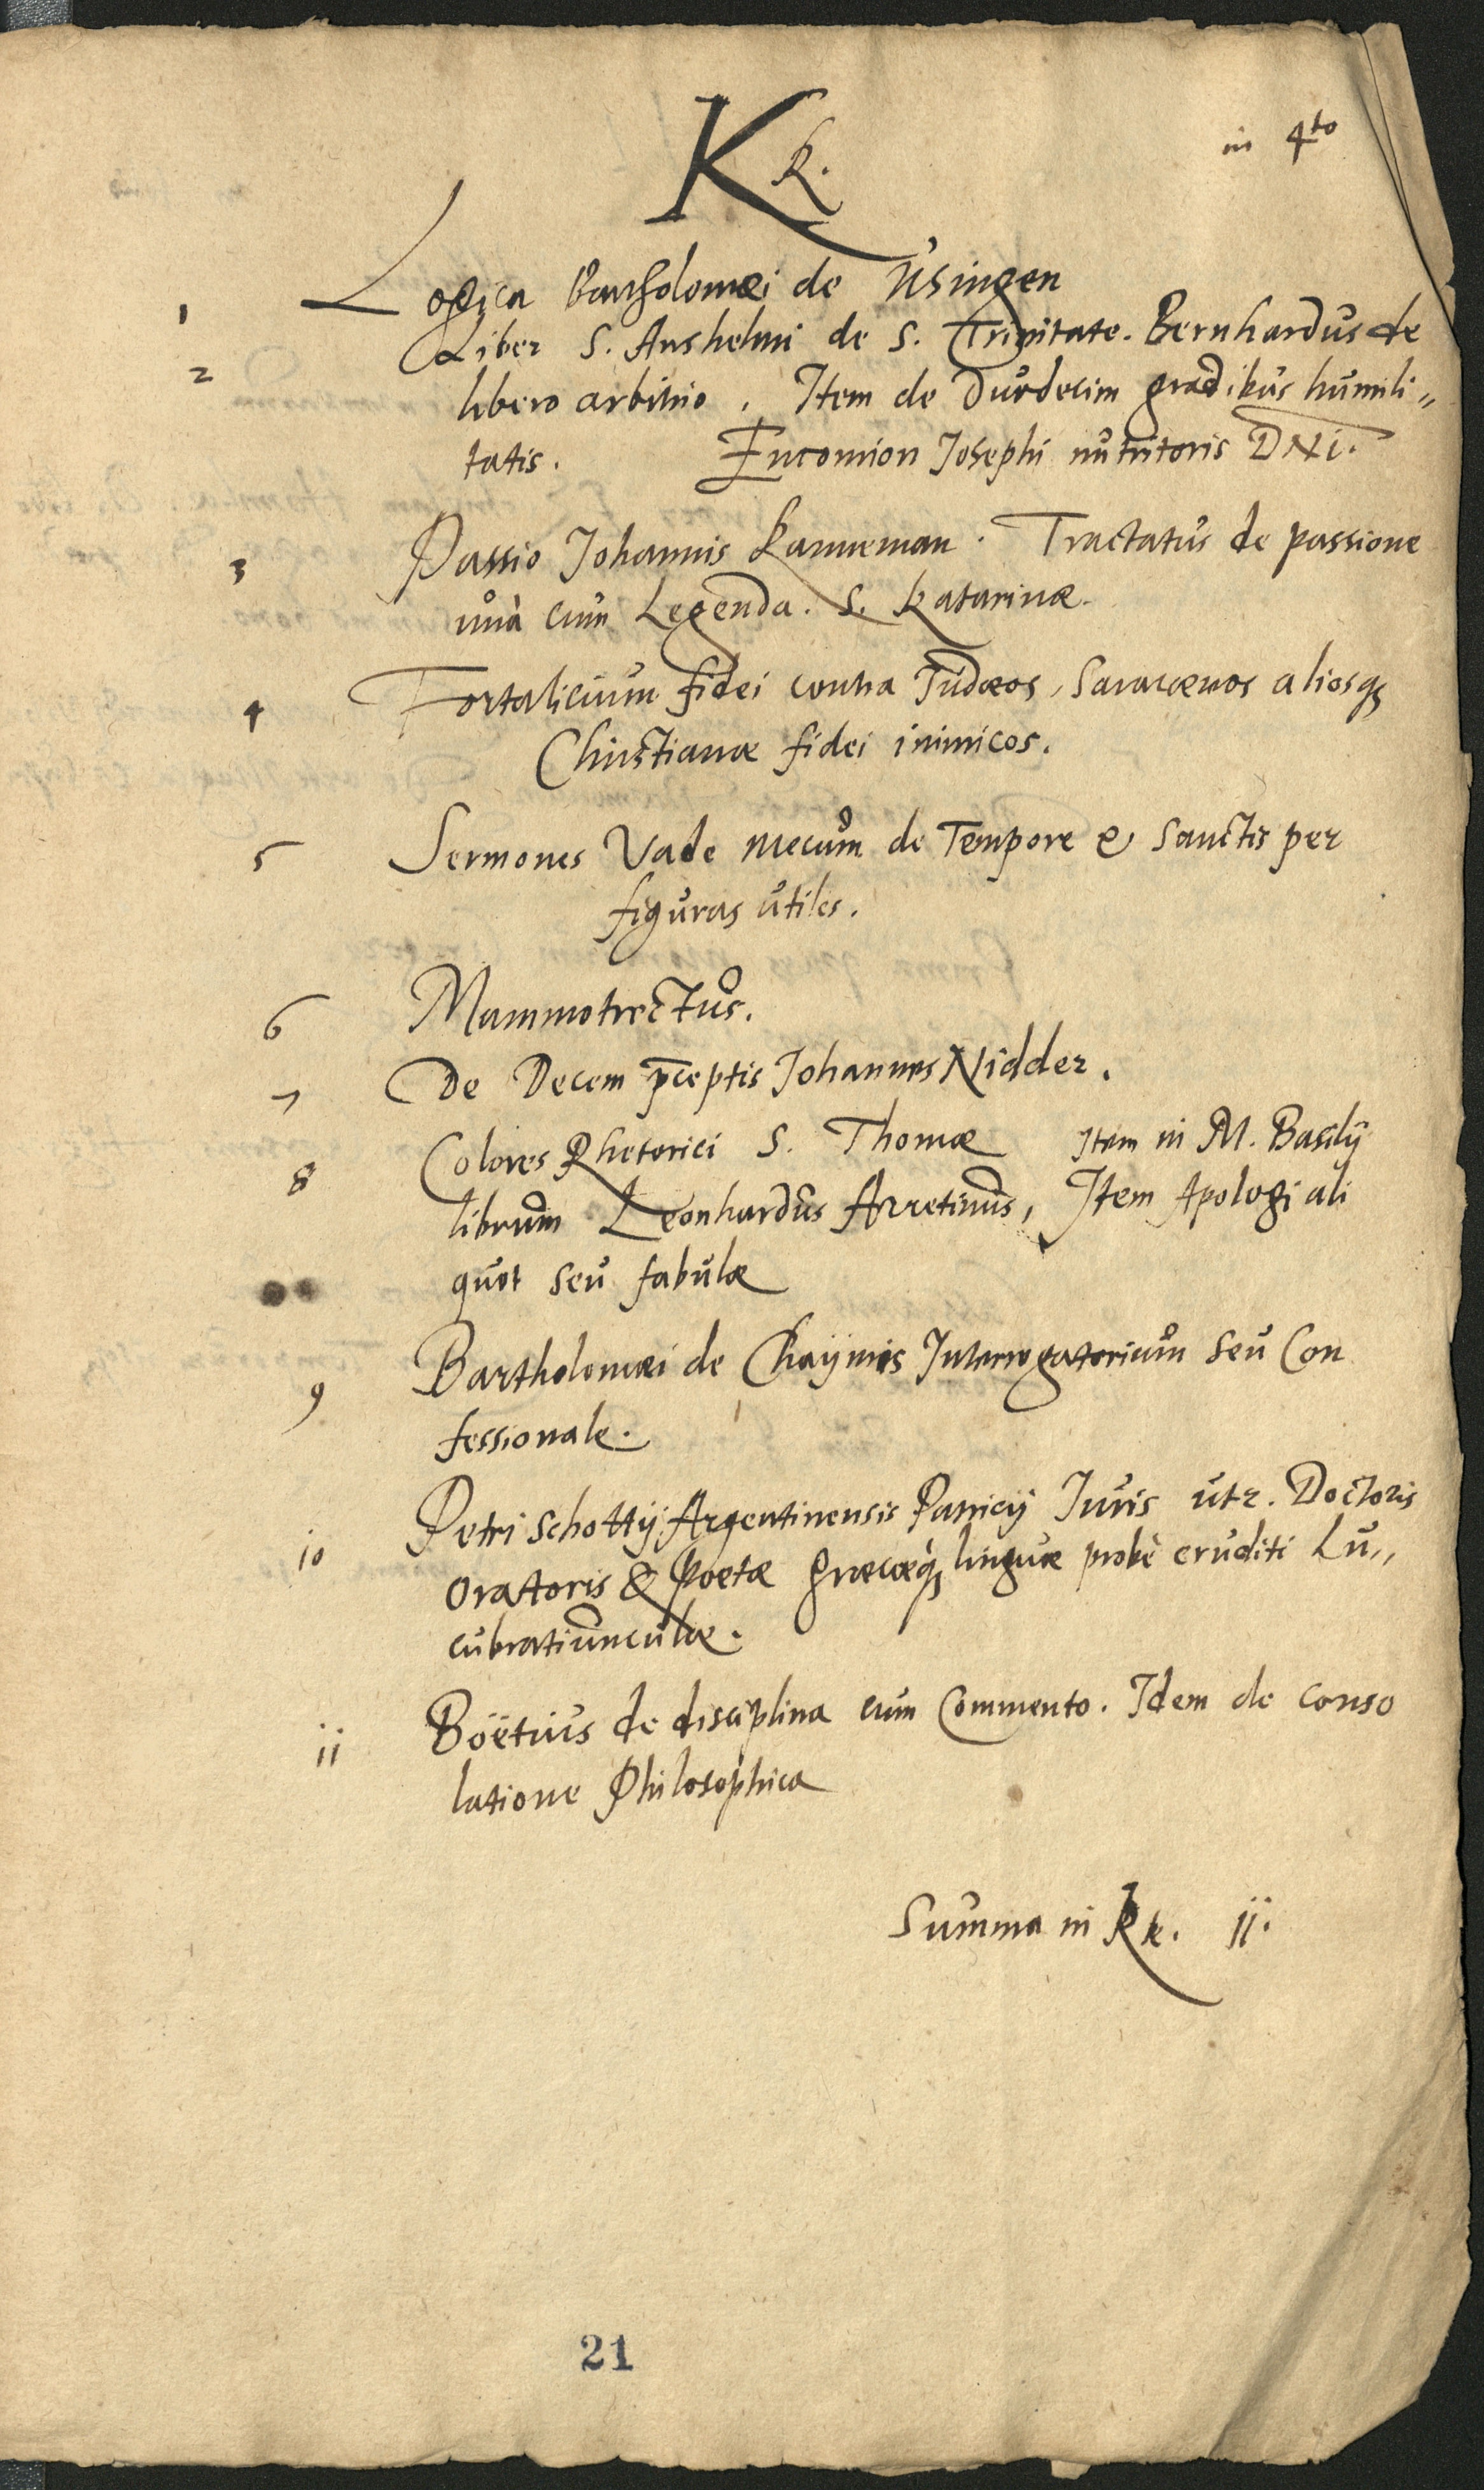 Kk.
in 4to
1 Logica Bartholomæi de Usingen
2 Liber S. Anshelmi de S. Trinitate. Bernhardus de
libero arbitrio. Item de duodecim gradibus humili„
tatis. Encomion Josephi nutritoris DNi.
3 Passio Johannis Kanneman. Tractatus de passione
unà cum Legenda. S. Katarinæ.
4 Fortalicium fidei contra Judæos, Saracænos aliosq;
Christianæ fidei inimicos.
5 Sermones Vade mecum de Tempore & Sanctis per
figuras utiles.
6 Mammotrectus.
7 De Decem p̄ceptis Johannes Nidder.
8 Colores Rhetorici S. Thomæ Item in M. Basilij
librum Leonhardus Arretinus, Item Apologi ali
quot seu fabulæ
9 Bartholomæi de Chaijmis Interrogatoricum seu Con
fessionale.
10 Petri Schottij Argentinensis Patricij Juris utr. Doctoris
Oratoris & Poetæ græcæq; linguæ probè eruditi Lu„
cubratiunculæ.
ii Boëtius de disciplina cum Commento. Idem de conso
latione Philosophica
Summa in Kk. ii.
21